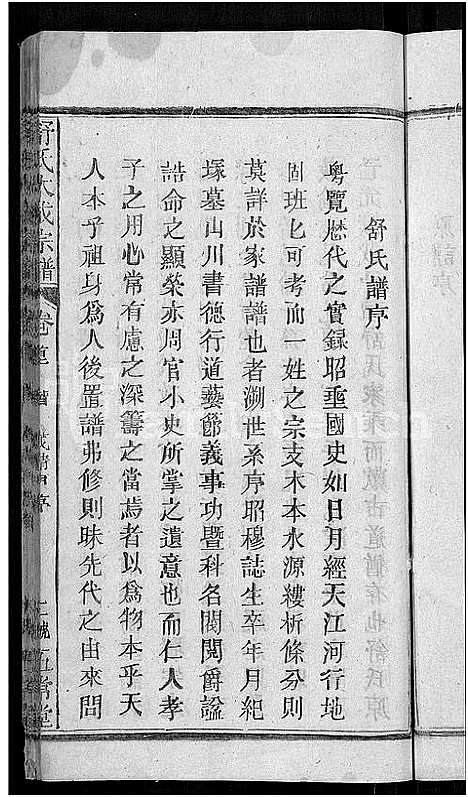 舒氏譜序
粵覽歷代之實録昭垂國史如日月經天江河行地
固班匕可考而一姓之宗支木本水源縷析條分則
莫詳於家譜譜也者溯世系序昭穆誌生卒年月紀
塚墓山川書德行道藝節義事功暨科名閥閱爵諡
誥命之顯榮亦周官小史所掌之遺意也而仁人孝
子之用心常有慮之深籌之當焉者以為物本乎天
人本乎祖身為人後置譜弗修則昧先代之由來問
舒氏大成宗譜 卷首